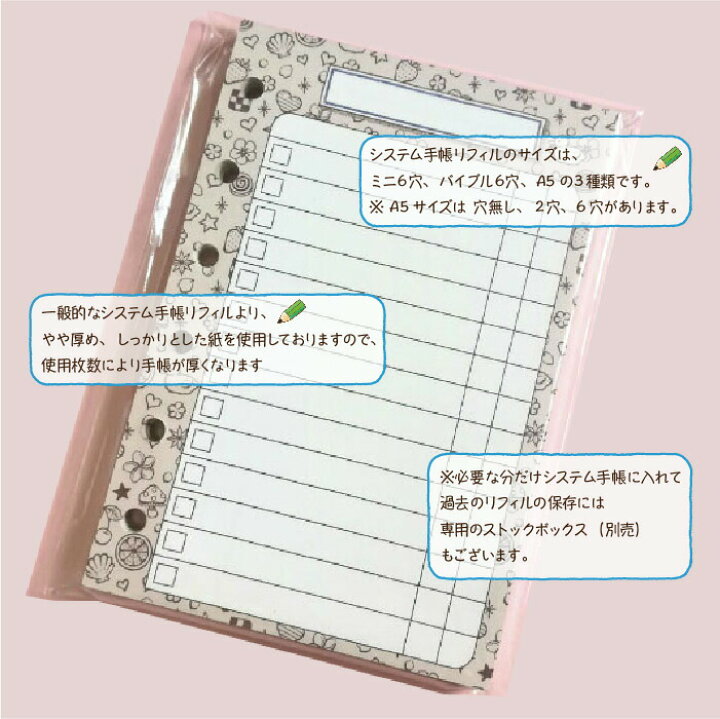 システム手帳リフィルのサイズは、
ミニ6穴、バイブル6穴、A5の3種類です。
※ A5サイズは 穴無し、2穴、6穴があります。
一般的なシステム手帳リフィルより、
やや厚め、しっかりとした紙を使用しておりますので、
使用枚数により手帳が厚くなります
※必要な分だけシステム手帳に入れて
過去のリフィルの保存には
専用のストックボックス （別売）
もございます。